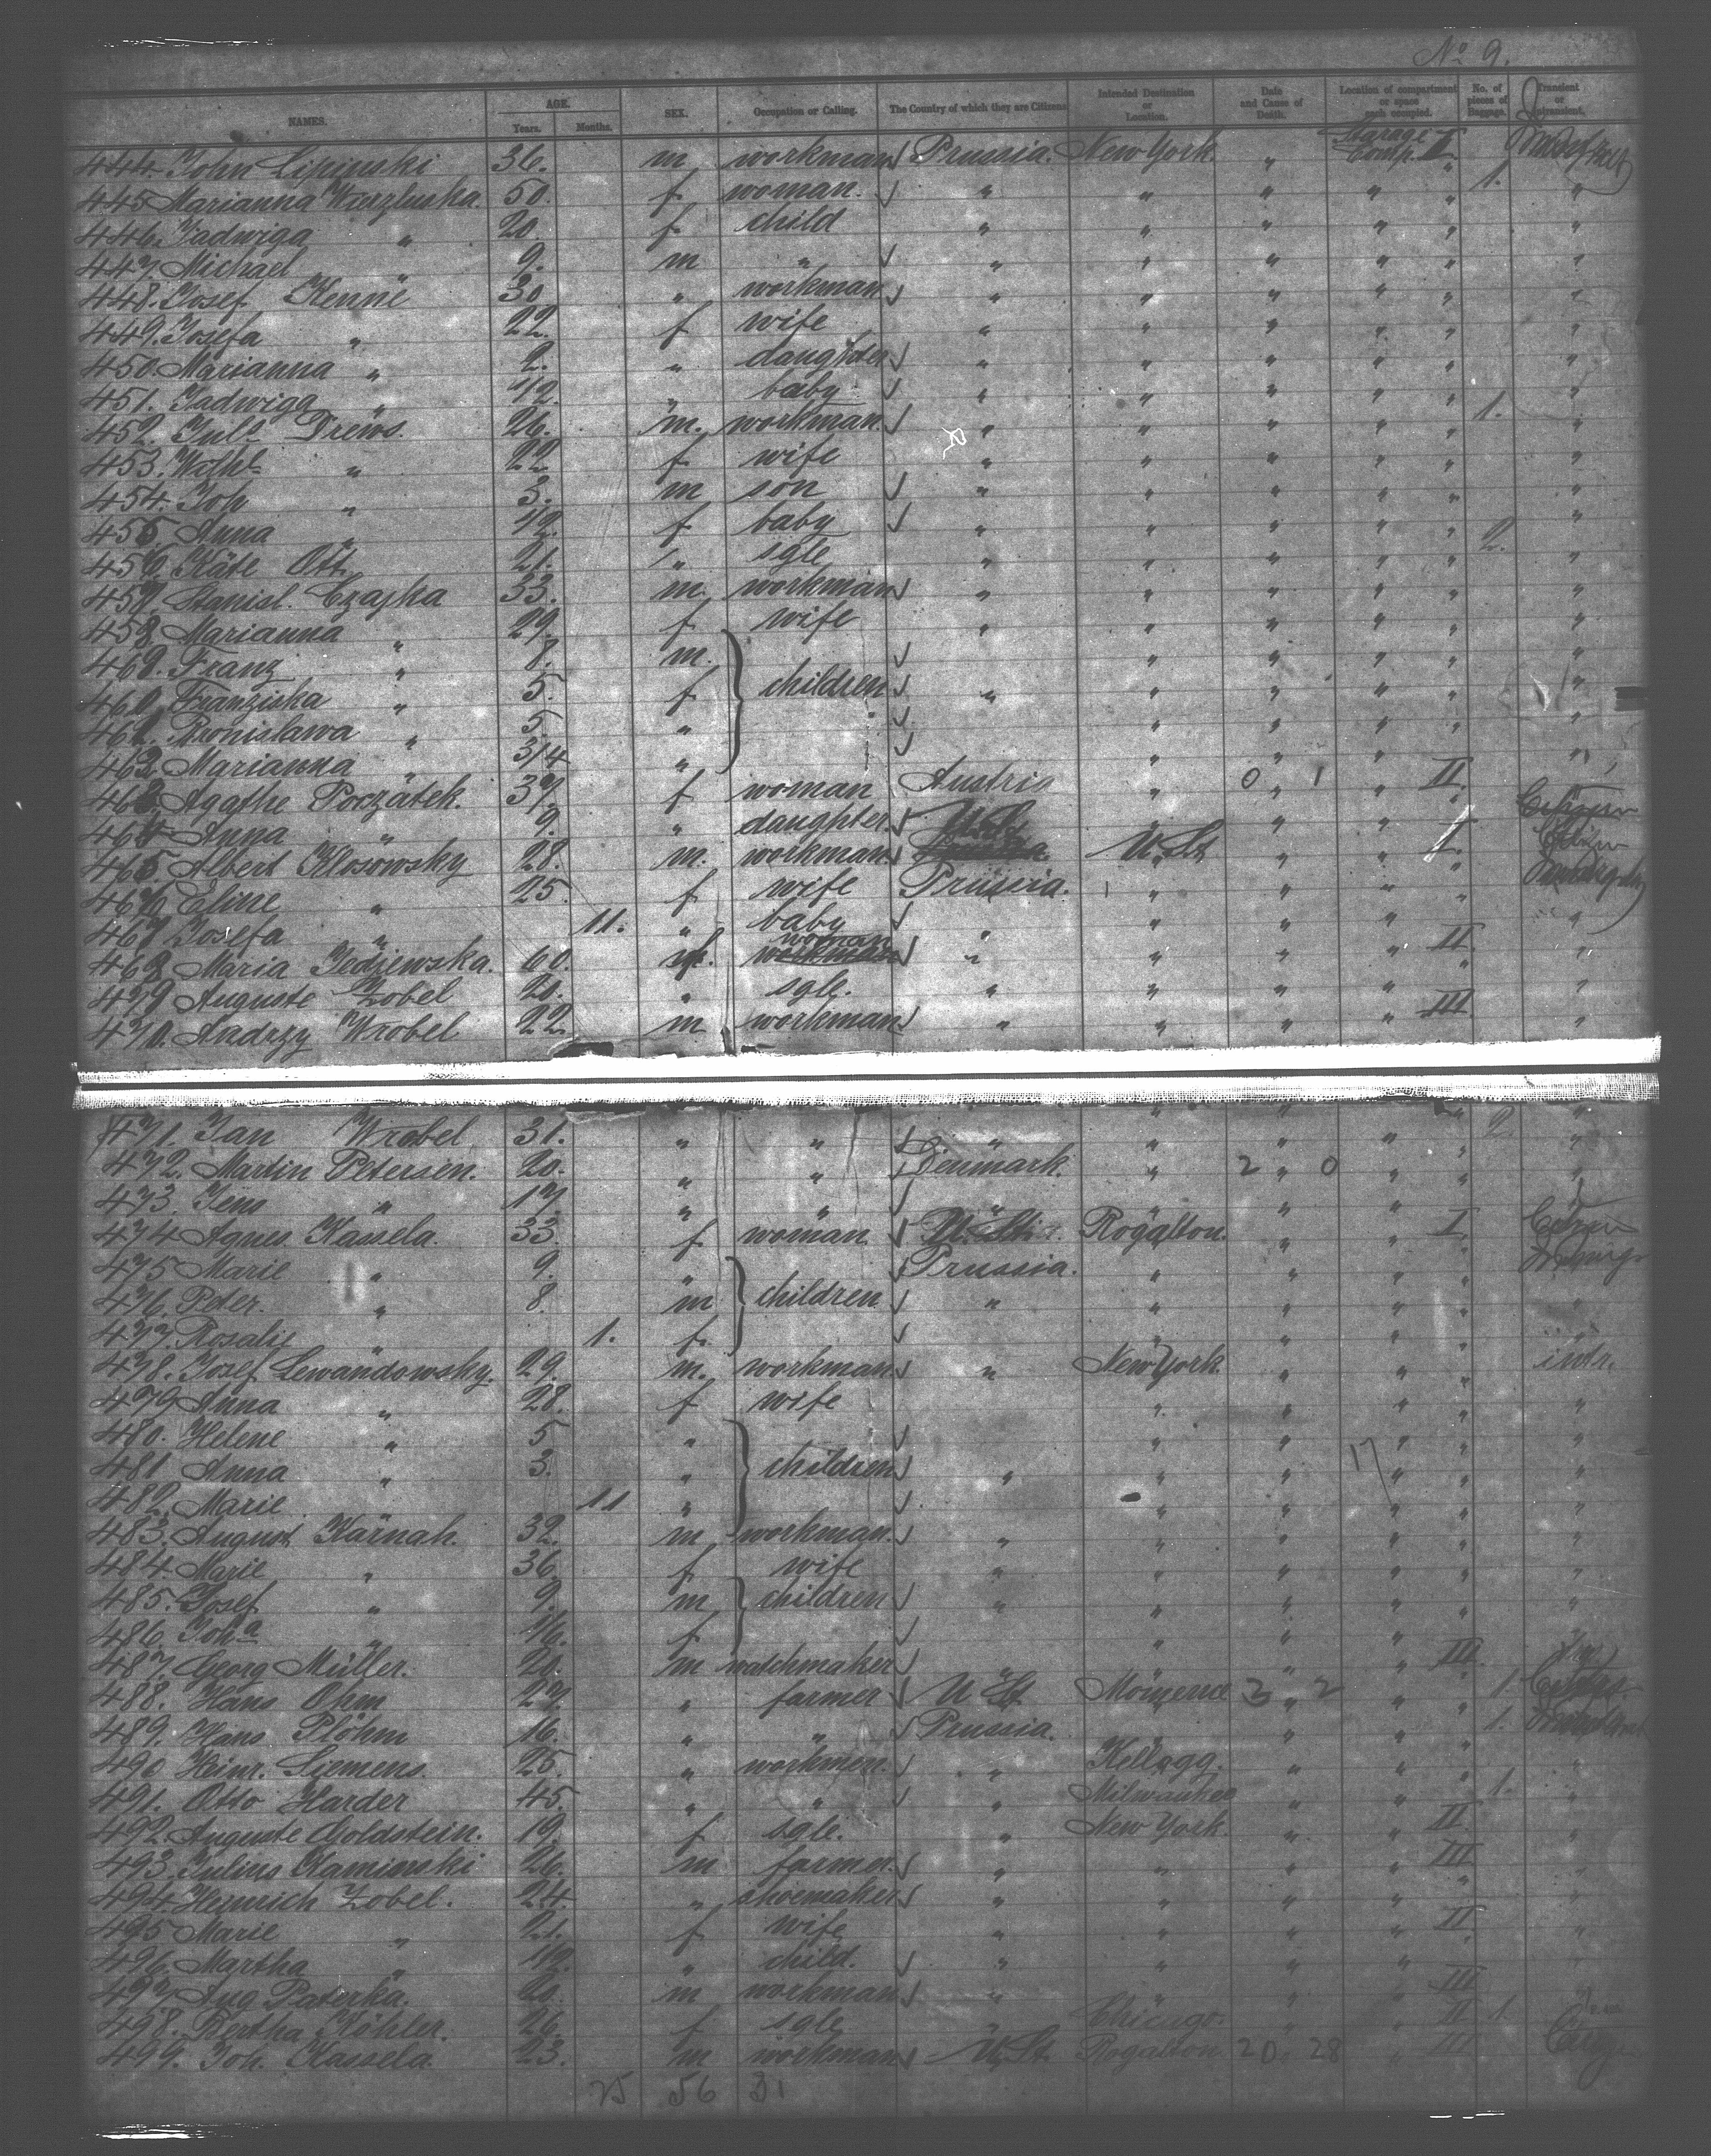 No 9.
NAMES. AGE. Years. Months. SEX. Occupation or Calling. The Country of which they are Citizens Intended Destination or Location. Date and Cause of Death. Location of compartment or space each occupied. No. of pieces of Baggage. Transient or
444. John Lipinski 36. m workman Prussia. New York " Comp. II
445 Marianna 50. f woman. " " " " " 1. "
446. Jadwiga " 20. f child " " " " " "
447. Michael " 9. m " " " " " " "
448. Josef Kenne 30 " workman " " " " " "
449. Josefa " 22. f wife " " " " " "
450. Marianna " 2. " daughter " " " " " "
451. Jadwiga " 1/12. " baby " " " " " "
452. Juls Drews. 26. m. workman " " " " " 1. "
453. Wilh. " 22 f wife " " " " " "
454. Joh " 3. m son " " " " " "
455. Anna " 1/2. f baby " " " " " "
456. Käte Ott 21. " sgle " " " " " 2. "
457. Stanisl. Czajka 33. m. workman " " " " " "
458. Marianna " 29. f wife " " " " " "
459. Franz " 8. m. " " " " "
460. Franziska " 5. f children " " " " " "
461. Bronislawa " 5. " " " " " "
462 Marianna " 3/4 " " " " "
463. Agathe Poczatek. 37. f woman Austria " 0 " 1 " II.
464 Anna " 9. " daughter. U. St. " " " "
465 Albert Klosowsky 28. m. workman. U. St. " " I.
466 Eline " 25. f wife Prussia. " " " "
467 Josefa " 11. " baby " " " " " "
468 Maria Jedzewska. 60. f. woman " " " " II. "
479 Auguste Zobel 20. " sgle. " " " " " "
470. Andrzy Wrobel 22. m workman " " " " III. "
471. Jan Wrobel 31. " " " " " " " 2. "
472. Martin Petersen. 20. " " Denmark. " 2 " 0 " " "
473. Jens " 17. " " " " " " " "
474 Agnes Kassela. 33. f woman U. St. Rogalton. " " I.
475 Marie " 9. " Prussia. " " " "
476. Peter. " 8. m children " " " " " "
477. Rosalie " 1. f. " " " " "
478. Josef Lewandowsky. 29. m. workman " New York " " " intr.
479 Anna " 28. f wife " " " " "
480. Helene " 5 " " " " " "
481 Anna " 3. " children " " " " " "
482. Marie 11 " " " " " "
483. August Karnah. 32. m workman. " " " " " "
484 Marie " 36 f wife " " " " " "
485. Josef " 9. m children " " " " " "
486. Joha " f " " " " "
487. Georg Müller. 20. m watchmaker " " " " III.
488. Hans Ohm 27. " farmer U St. 3 " 2 " " 1.
489. Hans Plöhm 16. " " Prussia. " " " " 1.
490 Heinr. Siemens. 25. " workmen. " Kellogg. " " " "
491. Otto Harder 45. " " " Milwaukee " " " 1. "
492. Auguste Goldstein. 19. f sgle. " New York. " " II. "
493. Julius Kaminski 26. m farmer. " " " " III. "
494. Heinrich Zobel. 24. " shoemaker " " " " " "
495 Marie " 21. f wife " " " " II. "
496. Martha " " child. " " " " " "
497 Aug Paterka. 20. m workman " " " " III. "
498. Bertha Köhler. 26. f sgle " Chicago. " " II 1.
499. Joh. Kassela. 23. m workman U. St. Rogalton 20 . 28 " III
25 56 31